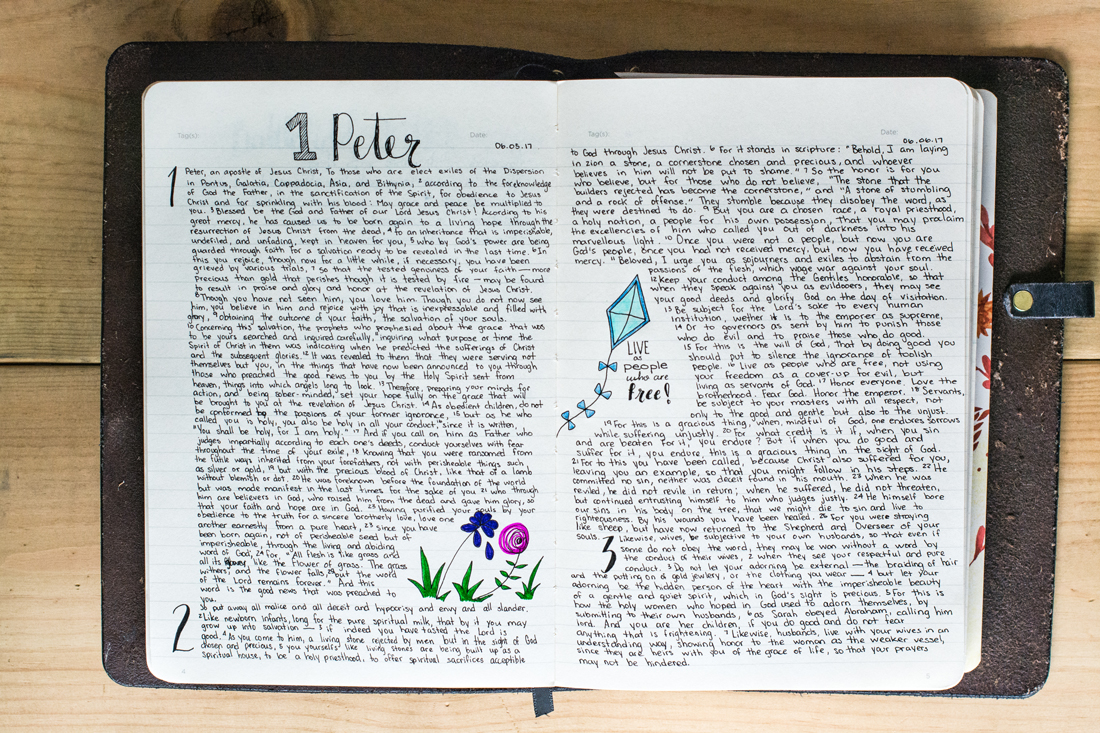 Tag(s):
Date:
1 Peter
06.05.17
1
Peter, an apostle of Jesus Christ, To those who are elect exiles of the Dispersion
in Pontus, Galatia, Cappadocia, Asia, and Bithynia, 2 according to the foreknowledge
of God the Father, in the sanctification of the Spirit, for obedience to Jesus
Christ and for sprinkling with his blood: May grace and peace be multiplied to
you. 3 Blessed be the God and Father of our Lord Jesus Christ! According to his
great mercy, he has caused us to be born again to a living hope through the
resurrection of Jesus Christ from the dead, 4 to an inheritance that is imperishable,
undefiled, and unfading, kept in heaven for you, 5 who by God's power are being
guarded through faith for a salvation ready to be revealed in the last time. 6 In
this you rejoice, though now for a little while, if necessary, you have been
grieved by various trials, 7 so that the tested genuineness of your faith — more
precious than gold that perishes though it is tested by fire — may be found
to result in praise and glory and honor at the revelation of Jesus Christ.
8 Though you have not seen him, you love him. Though you do not now see
him, you believe in him and rejoice with joy that is inexpressable and filled with
glory, 9 obtaining the outcome of your faith, the salvation of your souls.
10 Concerning this salvation, the prophets who prophesied about the grace that was
to be yours searched and inquired carefully, 11 inquiring what purpose or time the
Spirit of Christ in them was indicating when he predicted the sufferings of Christ
and the subsequent glories. 12 It was revealed to them that they were serving not
themselves but you, in the things that have now been announced to you through
those who preached the good news to you by the Holy Spirit sent from
heaven, things into which angels long to look. 13 Therefore, preparing your minds for
action, and being sober-minded, set your hope fully on the grace that will
be brought to you at the revelation of Jesus Christ. 14 As obedient children, do not
be conformed to the passions of your former ignorance, 15 but as he who
called you is holy, you also be holy in all your conduct, since it is written,
"You shall be holy, for I am holy." 17 And if you call on him as Father who
judges impartially according to each one's deeds, conduct yourselves with fear
throughout the time of your exile, 18 knowing that you were ransomed from
the futile ways inherited from your forefathers, not with perishable things such
as silver or gold, 19 but with the precious blood of Christ, like that of a lamb
without blemish or spot. 20 He was foreknown before the foundation of the world
but was made manifest in the last times for the sake of you 21 who through
him are believers in God, who raised him from the dead and gave him glory, so
that your faith and hope are in God. 22 Having purified your souls by your
obedience to the truth for a sincere brotherly love, love one
another earnestly from a pure heart, 23 since you have
been born again, not of perishable seed but of
imperishable, through the living and abiding
word of God; 24 for "All flesh is like grass and
all its glory like the flower of grass. The grass
withers, and the flower falls, 25 but the word
of the Lord remains forever." And this
word is the good news that was preached to
you.
2
So put away all malice and all deceit and hypocrisy and envy and all slander.
2 Like newborn infants, long for the pure spiritual milk, that by it you may
grow up into salvation — 3 if indeed you have tasted the Lord is
good. 4 As you come to him, a living stone rejected by men but in the sight of God
chosen and precious, 5 you yourselves like living stones are being built up as a
spiritual house, to be a holy priesthood, to offer spiritual sacrifices acceptable
Tag(s):
Date:
06.06.17
to God through Jesus Christ. 6 For it stands in scripture: "Behold, I am laying
in Zion a stone, a cornerstone chosen and precious, and whoever
believes in him will not be put to shame." 7 So the honor is for you
who believe, but for those who do not believe, "The stone that the
builders rejected has become the cornerstone," and "A stone of stumbling
and a rock of offense." They stumble because they disobey the word, as
they were destined to do. 9 But you are a chosen race, a royal priesthood,
a holy nation, a people for his own possession, that you may proclaim
the excellencies of him who called you out of darkness into his
marvellous light. 10 Once you were not a people, but now you are
God's people; once you had not received mercy, but now you have received
mercy. 11 Beloved, I urge you as sojourners and exiles to abstain from the
passions of the flesh, which wage war against your soul.
12 Keep your conduct among the Gentiles honorable, so that
when they speak against you as evildoers, they may see
your good deeds and glorify God on the day of visitation.
13 Be subject for the Lord's sake to every human
institution, wether it is to the emperor as supreme,
14 Or to governors as sent by him to punish those
who do evil and to praise those who do good.
15 For this is the will of God, that by doing good you
should put to silence the ignorance of foolish
people. 16 Live as people who are free, not using
your freedom as a cover-up for evil, but
living as servants of God. 17 Honor everyone. Love the
brotherhood. Fear God. Honor the emperor. 18 Servants,
be subject to your masters with all respect, not
only to the good and gentle but also to the unjust.
LIVE
as
people
who are
free!
19 For this is a gracious thing, when, mindful of God, one endures sorrows
while suffering unjustly. 20 For what credit is it if, when you sin
and are beaten for it, you endure? But if when you do good and
suffer for it, you endure, this is a gracious thing in the sight of God.
21 For to this you have been called, because Christ also suffered for you,
leaving you an example, so that you might follow in his steps. 22 He
committed no sin, neither was deceit found in his mouth. 23 When he was
reviled, he did not revile in return; when he suffered, he did not threaten,
but continued entrusting himself to him who judges justly. 24 He himself bore
our sins in his body on the tree, that we might die to sin and live to
righteousness. By his wounds you have been healed. 25 For you were straying
like sheep, but have now returned to the Shepherd and Overseer of your
souls.
3
Likewise, wives, be subjective to your own husbands, so that even if
some do not obey the word, they may be won without a word by
the conduct of their wives, 2 when they see your respectful and pure
conduct. 3 Do not let your adorning be external — the braiding of hair
and the putting on of gold jewelry, or the clothing you wear — 4 but let your
adorning be the hidden person of the heart with the imperishable beauty
of a gentle and quiet spirit, which in God's sight is precious. 5 For this is
how the holy women who hoped in God used to adorn themselves, by
submitting to their own husbands, 6 as Sarah obeyed Abraham, calling him
lord. And you are her children, if you do good and do not fear
anything that is frightening. 7 Likewise, husbands, live with your wives in an
understanding way, showing honor to the woman as the weaker vessel,
since they are heirs with you of the grace of life, so that your prayers
may not be hindered.